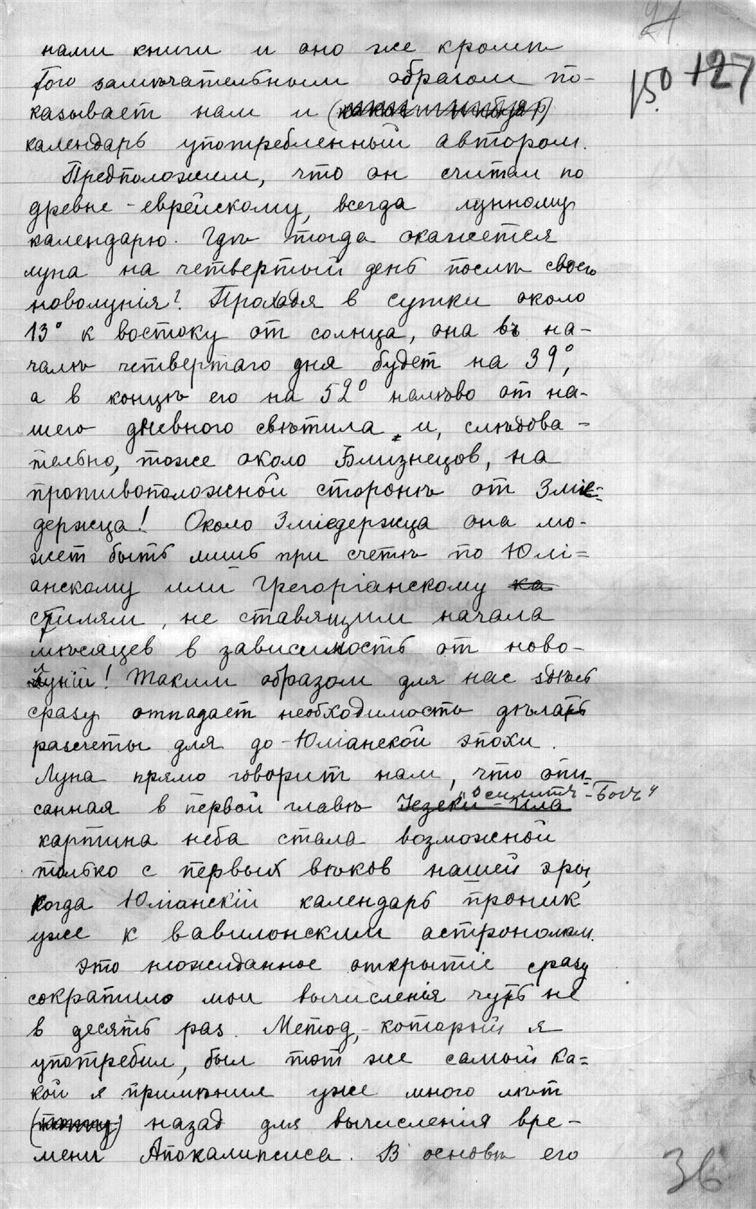 21
150 +127
нами книги и оно же кромѣ
того замѣчательным образом по-
казывает нам и
календарь употребленный автором.
Предположим, что он считал по
древне-еврейскому, всегда лунному
календарю. Гдѣ тогда окажется
луна на четвертый день послѣ своего
новолунія? Проходя в сутки около
13° к востоку от солнца, она въ на-
чалѣ четвертаго дня будет на 39°,
а в концѣ его на 52° налѣво от на-
шего дневного свѣтила, и, слѣдова-
тельно, тоже около Близнецов, на
противоположной сторонѣ от Зміе-
держца! Около Зміедержца она мо-
жет быть лишь при счетѣ по Юлі=
анскому или Грегоріанскому ка
стилям, не ставящим начала
мѣсяцев в зависимость от ново-
луній! Таким образом для нас здѣсь
сразу отпадает необходимость дѣлать
разсчеты для до-Юліанской эпохи.
Луна прямо говорит нам, что опи-
санная в первой главѣ Іезеки-Ила "Осилитъ-Богъ"
картина неба стала возможной
только с первых вѣков нашей эры,
когда Юліанскій календарь проник
уже к вавилонским астрономам.
Это неожиданное открытіе сразу
сократило мои вычисленія чуть не
в десять раз. Метод, который я
употребил, был тот же самый ка=
кой я примѣнил уже много лѣт
назад для вычисленія вре-
мени Апокалипсиса. В основѣ его
36